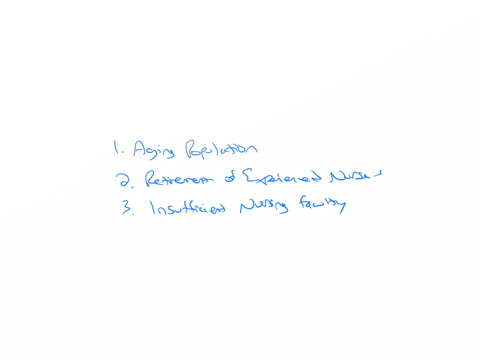 1. Aging Population
2. Retirement of Experienced Nurses
3. Insufficient Nursing Faculty